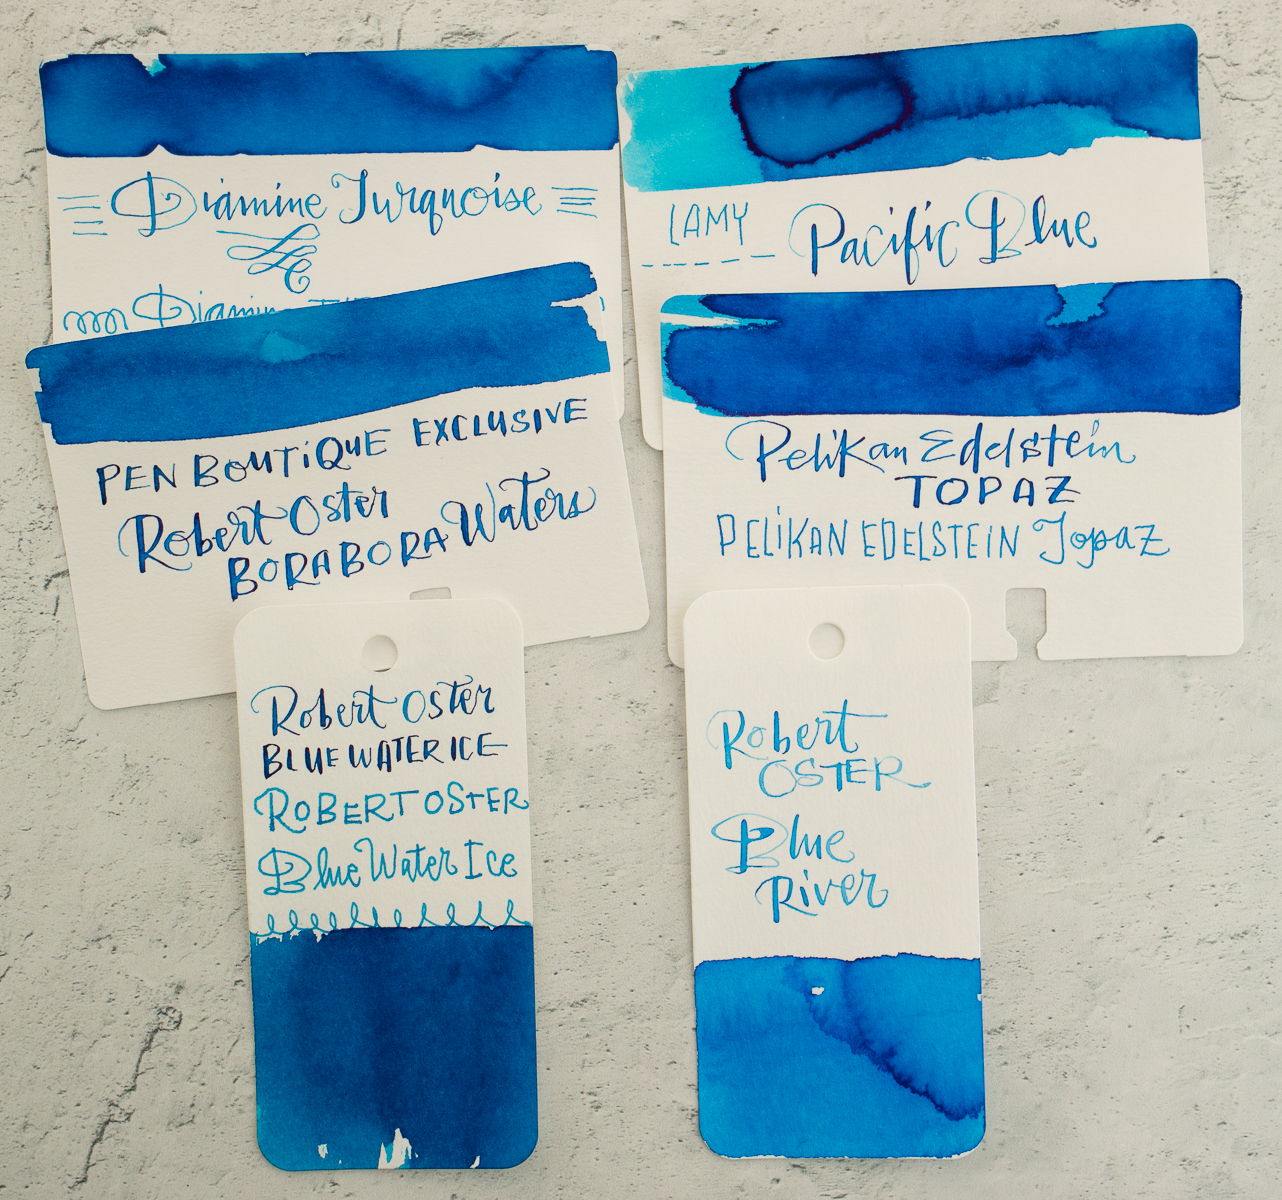 Diamine Turquoise
Diamin
LAMY Pacific Blue
PEN BOUTiQUE EXCLUSIVE
Robert Oster
BORA BORA Waters
Pelikan Edelstein
TOPAZ
PELiKAN EDELSTEiN Topaz
Robert Oster
BLUE WATER ICE
ROBERT OSTER
Blue Water Ice
Robert
OSTER
Blue
River